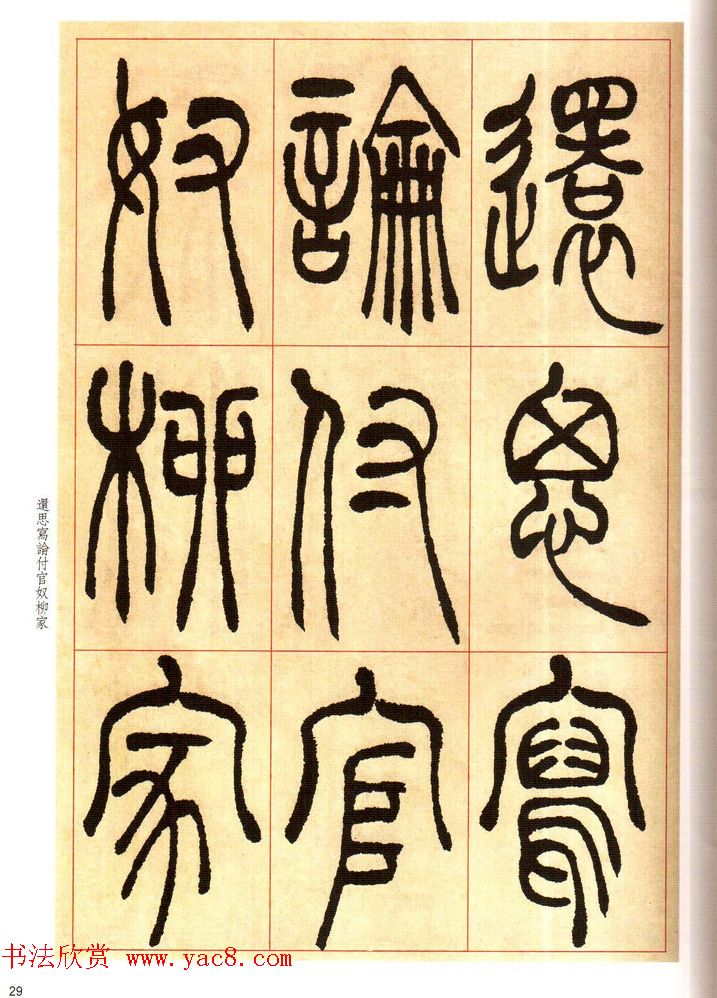 還思寫
論付官
奴柳家
還思寫論付官奴柳家
书法欣赏 www.yac8.com
29